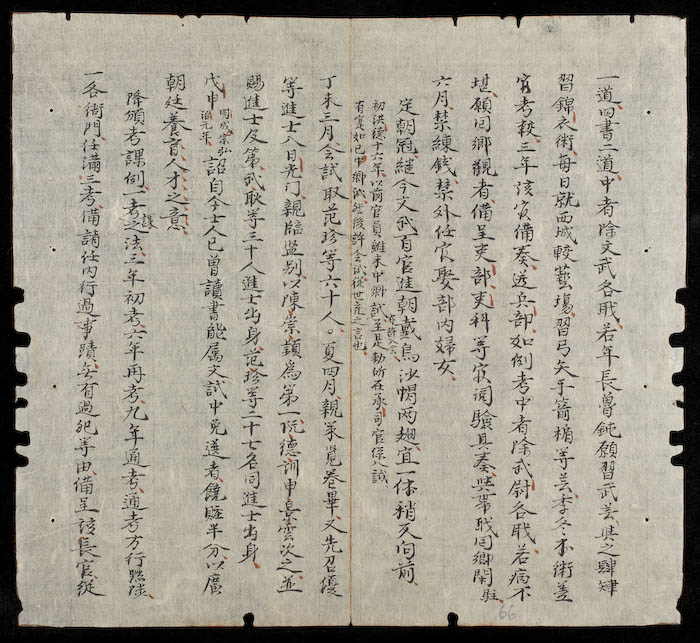 一道四書二道中者除文武各職若年長魯鈍願習武芸與之肄
習錦衣衛每日就西城較藝塲習弓矢手箭楯等芸季冬本衛差
官考較三年該官備奏送兵部如例考中者除武尉各職若病不
堪願囘鄉觀者備呈吏部吏科等官閱驗具奏與帯職囘鄉閑住
六月禁練錢禁外任官娶部内婦女
定朝冠継今文武百官進朝戴烏沙帽两翅宜一体稍仄向前
初洪德十六年以前官員雖未中鄉試亦許入会試至是勅所在承司官保入試
有實如已中鄉試然後許会試從世彦之言也
丁未三月会試取范珍等六十人。夏四月親策覽卷畢又先召優
等進士入日光门親臨监别以陳崇顈爲第一阮德訓申景雲次之並
賜進士及第武耿等三十人進士出身范珍等二十七名同進士出身
戊申明成宗弘治元年詔自今士人已曾讀書能属文試中免選者饒賍半分以廣
朝廷養育人才之意
降頒考課例一考課之法三年初考六年再考九年通考通考方行黜陟
一各衙門任滿三考備請任内行過事蹟无有過犯等由備呈該長官從